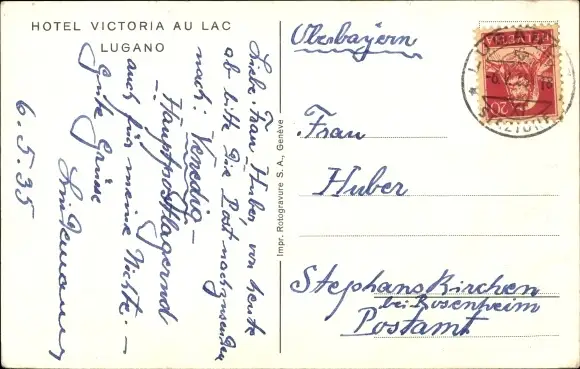 HOTEL VICTORIA AU LAC
LUGANO
Liebe Frau Huber, von heute
ab bitte die Post nachzusenden
nach: Venedig –
Hauptpostlagernd
auch für meine Nichte. –
Gute Grüsse
6.5.35
Impr. Rotogravure S. A., Genève
Oberbayern
Frau
Huber
Stephanskirchen
bei Rosenheim
Postamt
HELVETIA
20
LUGANO